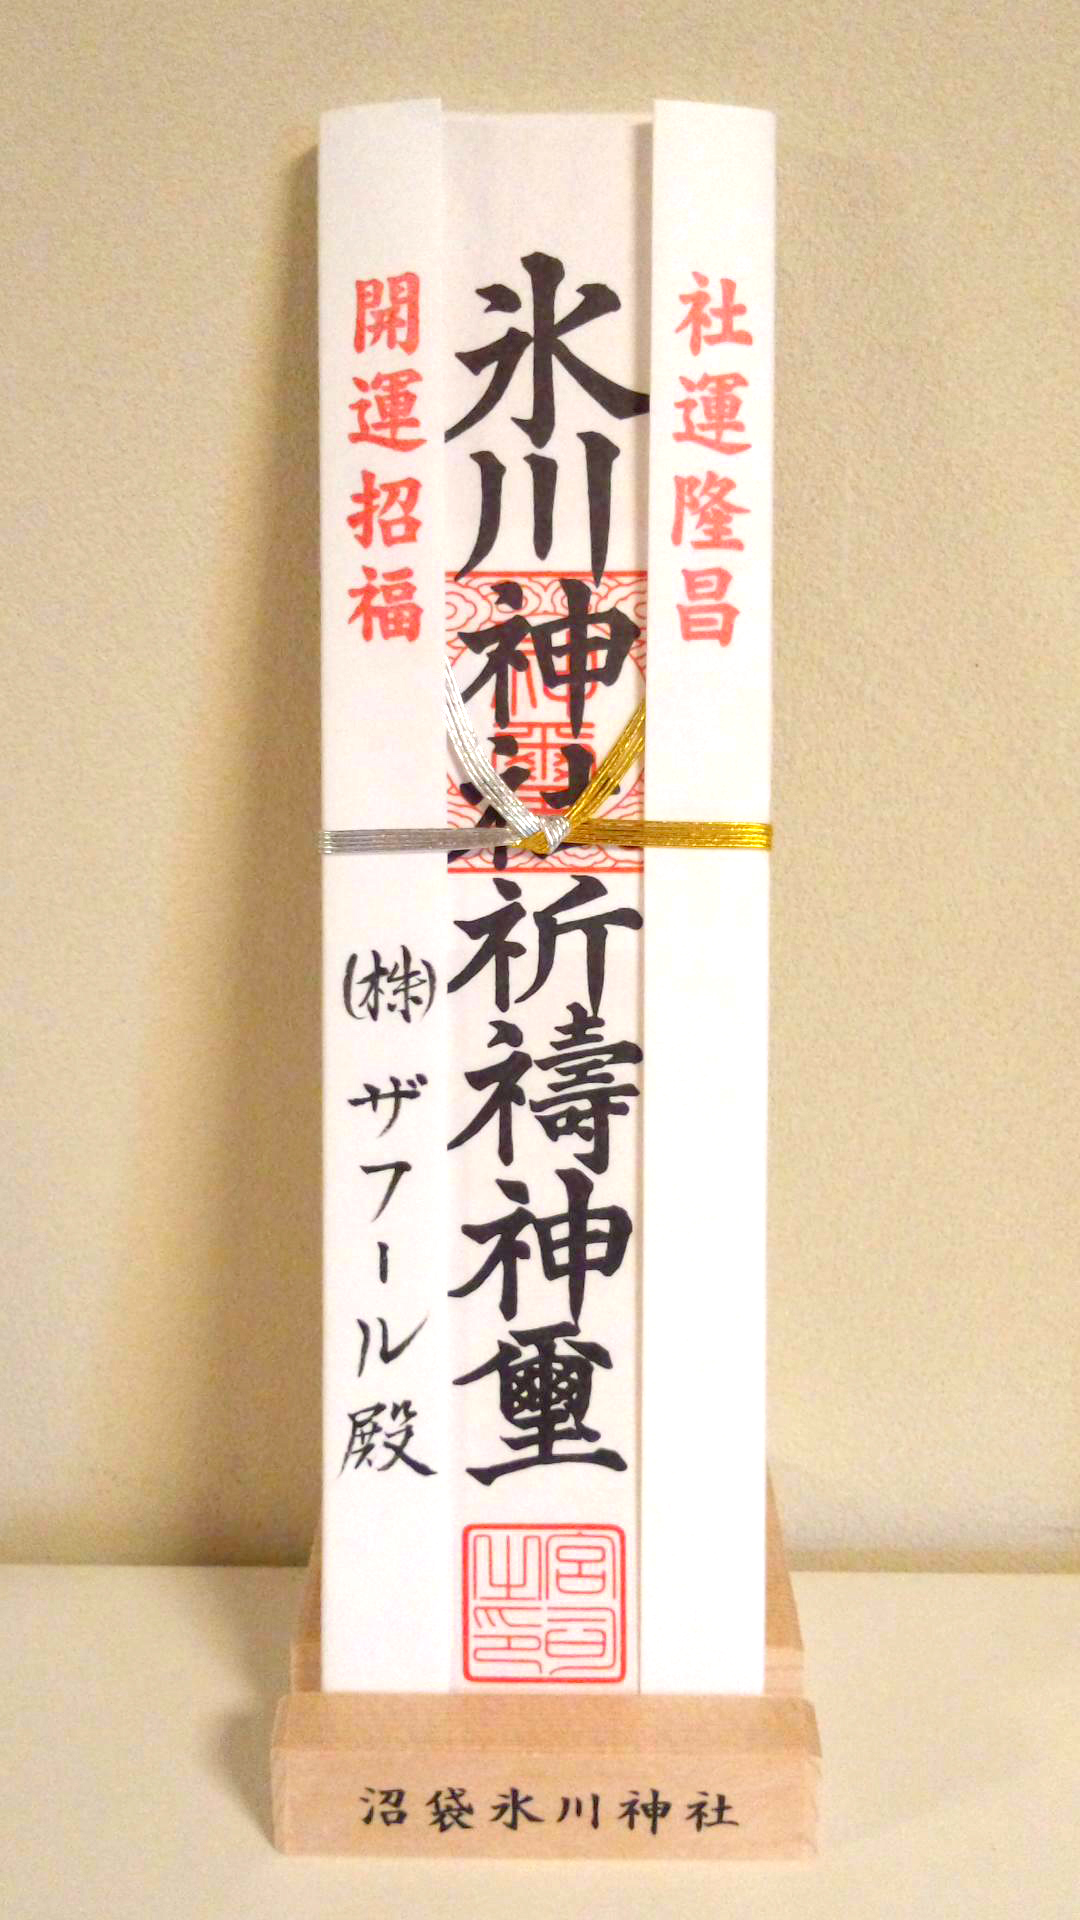 社運隆昌
氷川神社祈禱神璽
開運招福
㈱ ザフール殿
神璽
宮司之印
沼袋氷川神社